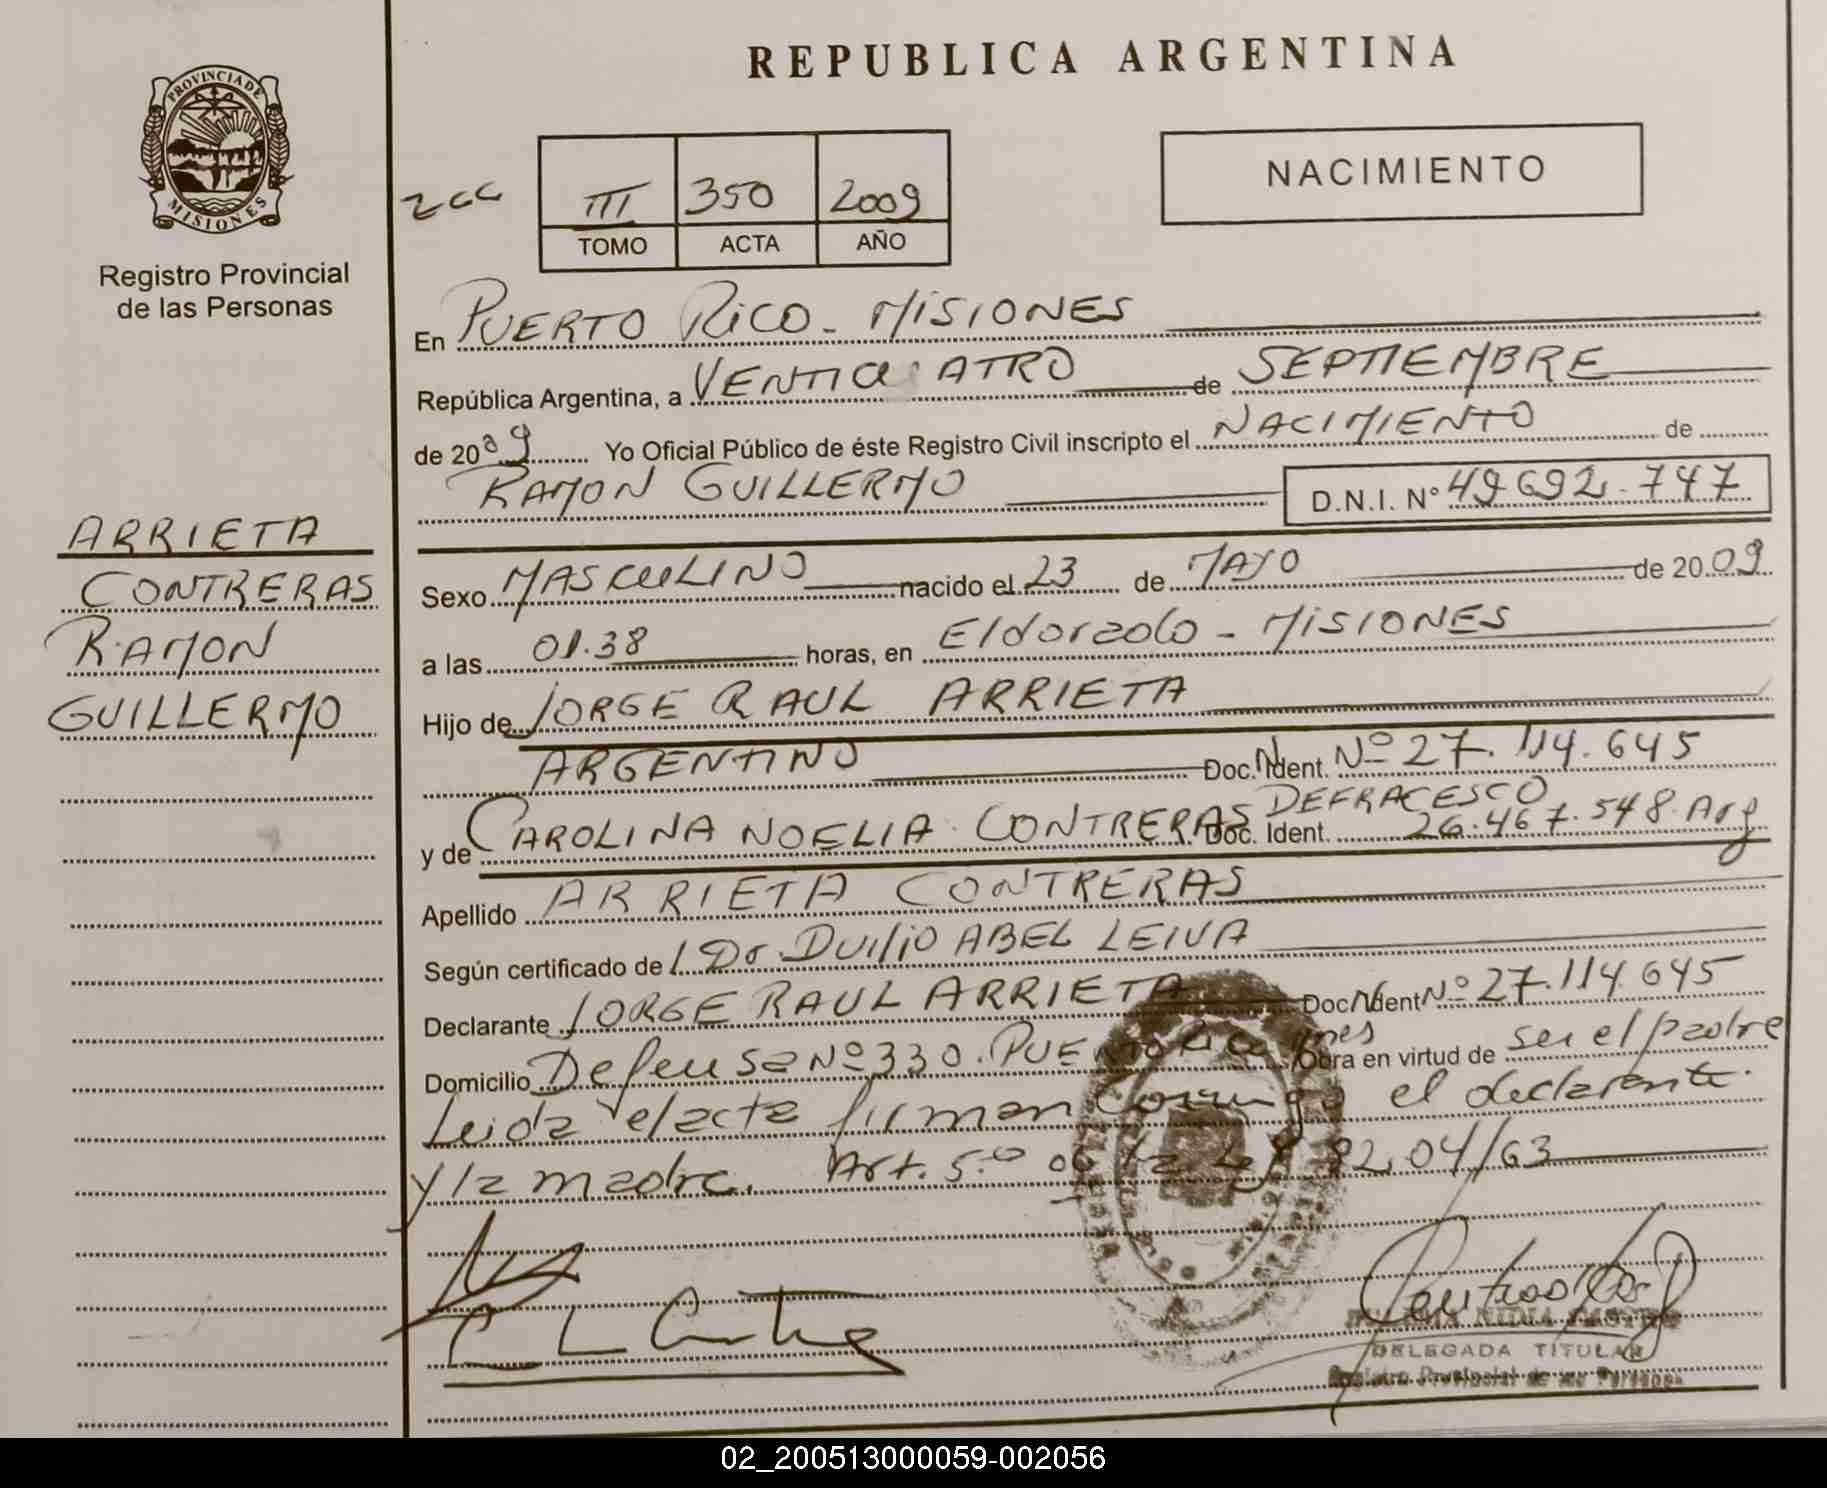 PROVINCIA DE
MISIONES
Registro Provincial
de las Personas
ARRIETA
CONTRERAS
RAMON
GUILLERMO
REPUBLICA ARGENTINA
III 350 2009
TOMO ACTA AÑO
NACIMIENTO
En PUERTO RICO - MISIONES
República Argentina, a VENTICUATRO de SEPTIEMBRE
de 2009 Yo Oficial Público de éste Registro Civil inscripto el NACIMIENTO de
RAMON GUILLERMO D.N.I. N° 49692.747
Sexo MASCULINO nacido el 23 de MAYO de 2009
a las 01.38 horas, en Eldorado - MISIONES
Hijo de JORGE RAUL ARRIETA
ARGENTINO Doc. Ident. Nº 27.114.645
y de CAROLINA NOELIA CONTRERAS DEFRACESCO Doc. Ident. 26.467.548. Arg
Apellido ARRIETA CONTRERAS
Según certificado del Dr. Duilio ABEL LEIVA
Declarante JORGE RAUL ARRIETA Doc. Ident Nº 27.114.645
Domicilio Defensa Nº 330. PUERTO Rico Mnes Obra en virtud de ser el padre
Leida el acta firman conmigo el declarante
y la madre. Art. 5.º de la Ley 82.04/63
DELEGADA TITULAR
Registro Provincial de las Personas
02_200513000059-002056